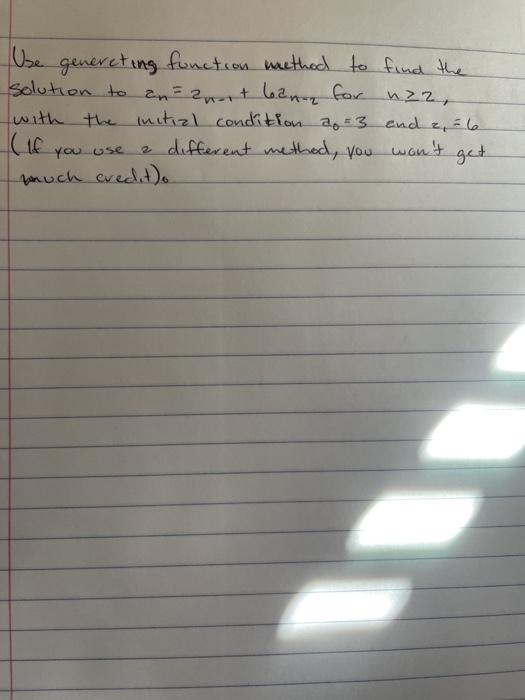 Use generating function method to find the
solution to aₙ = aₙ₋₁ + 6aₙ₋₂ for n ≥ 2,
with the initial condition a₀ = 3 and a₁ = 6
(If you use a different method, you won't get
much credit).